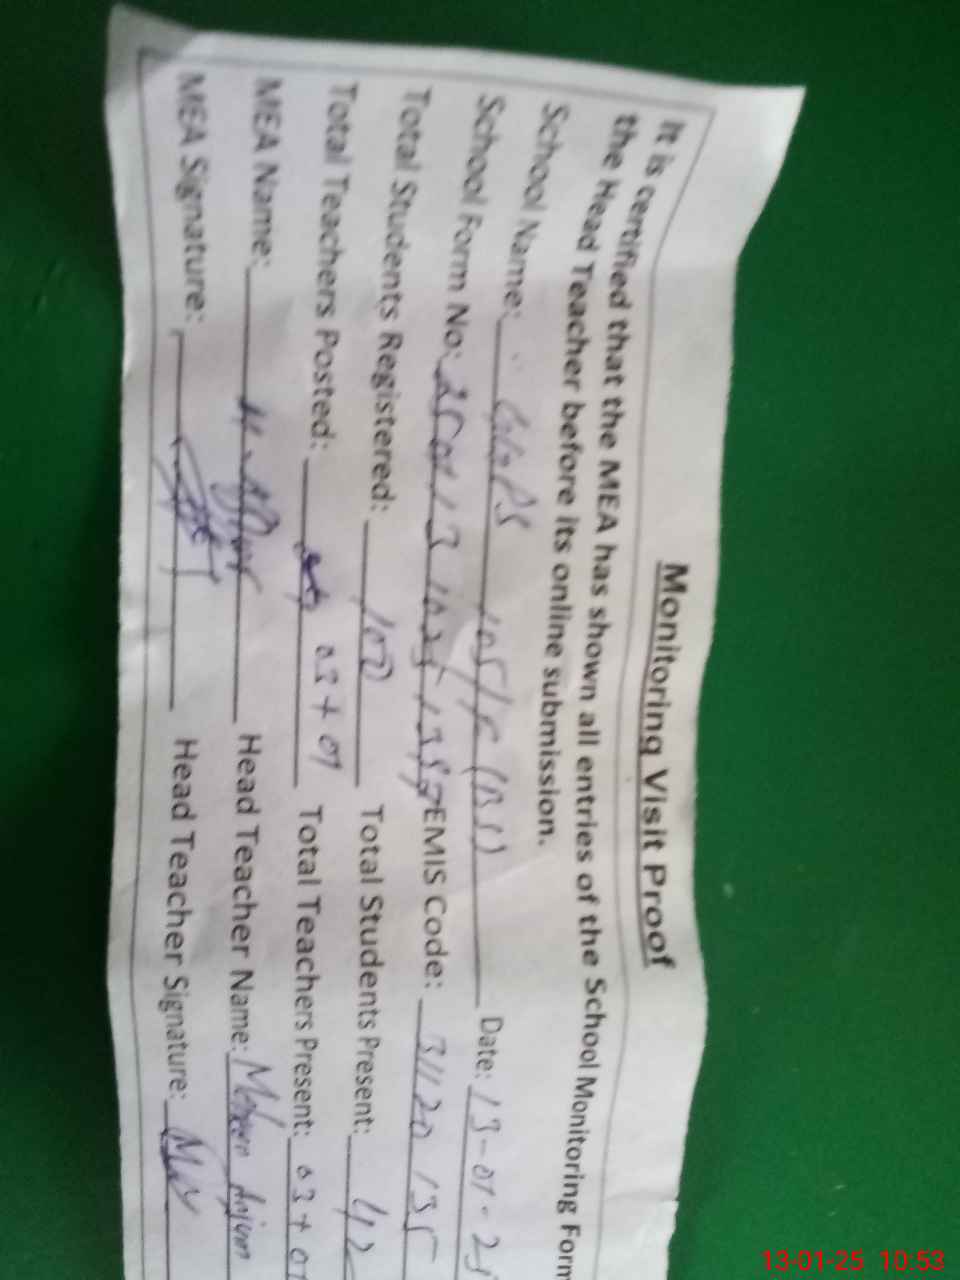 Monitoring Visit Proof
It is certified that the MEA has shown all entries of the School Monitoring Form
the Head Teacher before its online submission.
School Name: 105/ (BI) Date: 13-01-25
School Form No: EMIS Code: 31120135
Total Students Registered: Total Students Present: 42
Total Teachers Posted: 03+01 Total Teachers Present: 03+01
MEA Name: Head Teacher Name:
MEA Signature: Head Teacher Signature:
13-01-25 10:53